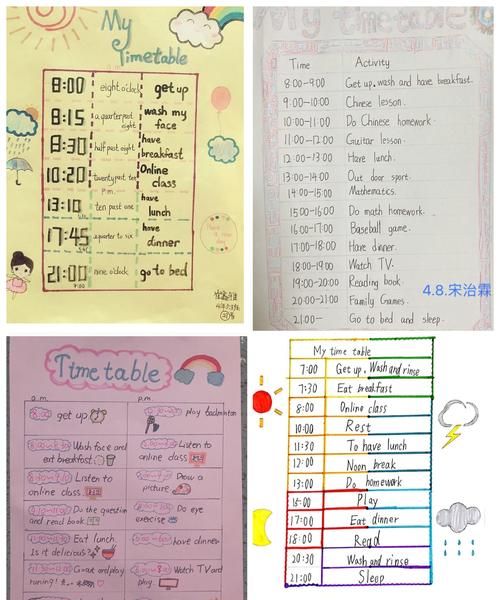 My
Timetable
8:00 eight o'clock get up
8:15 a quarter past eight wash my face
8:30 half past eight have breakfast
10:20 twenty past ten Online class
p.m.
13:10 ten past one have lunch
17:45 a quarter to six have dinner
21:00 nine o'clock go to bed
9:00
Have a nice day
My timetable
Time Activity
8:00-9:00 Get up. wash and have breakfast.
9:00-10:00 Chinese lesson.
10:00-11:00 Do Chinese homework.
11:00-12:00 Guitar lesson.
12:00-13:00 Have lunch.
13:00-14:00 Out door sport.
14:00-15:00 Mathematics.
15:00-16:00 Do math homework.
16:00-17:00 Baseball game.
17:00-18:00 Have dinner.
18:00-19:00 Watch TV.
19:00-20:00 Reading book.
20:00-21:00 Family Games.
21:00- Go to bed and sleep.
4.8.宋治霖
Time table
a.m. p.m.
8:00 get up play badminton
Wash face and eat breakfast Listen to online class
Listen to online class Draw a picture
Do the question and read book Do eye exercise
Eat lunch. Is it delicious? have dinner
Go out and play runing! Watch TV and play
My time table
7:00 Get up. Wash and rinse
7:30 Eat breakfast
8:00 Online class
10:00 Rest
11:30 To have lunch
12:00 Noon break
13:00 Do homework
15:00 Play
17:00 Eat dinner
18:00 Read
20:30 Wash and rinse
21:00 Sleep